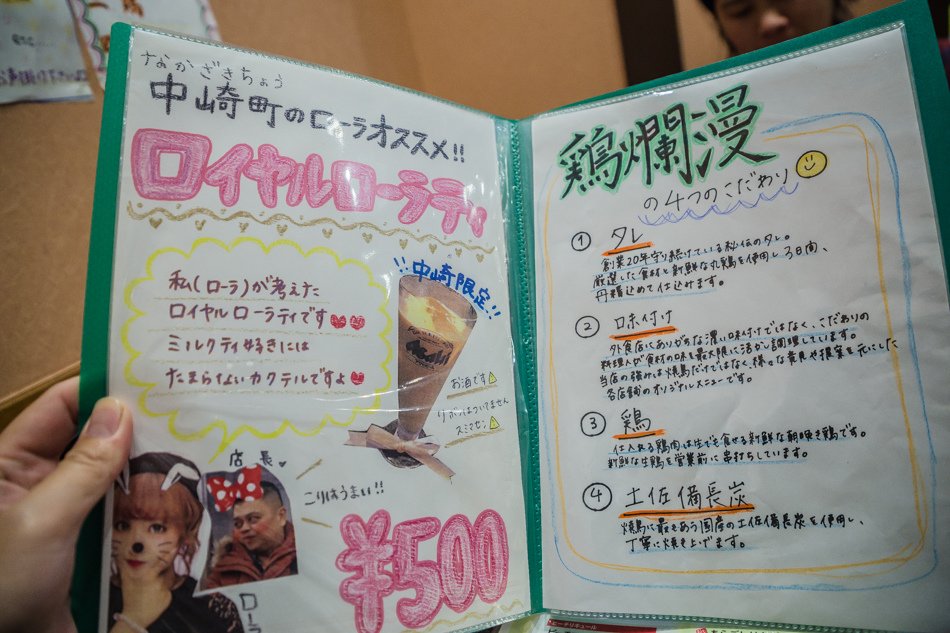 なかざきちょう
中崎町のローラオススメ!!
ロイヤルローラティ
私(ローラ)が考えた
ロイヤルローラティです
ミルクティ好きには
たまらないカクテルですよ
!!中崎限定!!
Asahi
お酒です
リボンはついてません
スミマセン
店長
こりはうまい!!
¥500
ローラ
鶏爛漫
の4つのこだわり
① タレ
創業20年守り続けている秘伝のタレ。
厳選した食材と新鮮な丸鶏を使用し3日間、
丹精込めて仕込みます。
② 味付け
外食店にありがちな濃い味付けではなく、こだわりの
料理人が食材の味を最大限に活かし調理しています。
当店の強みは焼鳥だけではなく、様々な意見や提案を元にした
各店舗のオリジナルメニューです。
③ 鶏
仕入れる鶏肉は生でも食せる新鮮な朝曳き鶏です。
新鮮な生鶏を営業前に串打ちしています。
④ 土佐備長炭
焼鳥に最もあう国産の土佐備長炭を使用し、
丁寧に焼き上げます。
ピーチリキュール